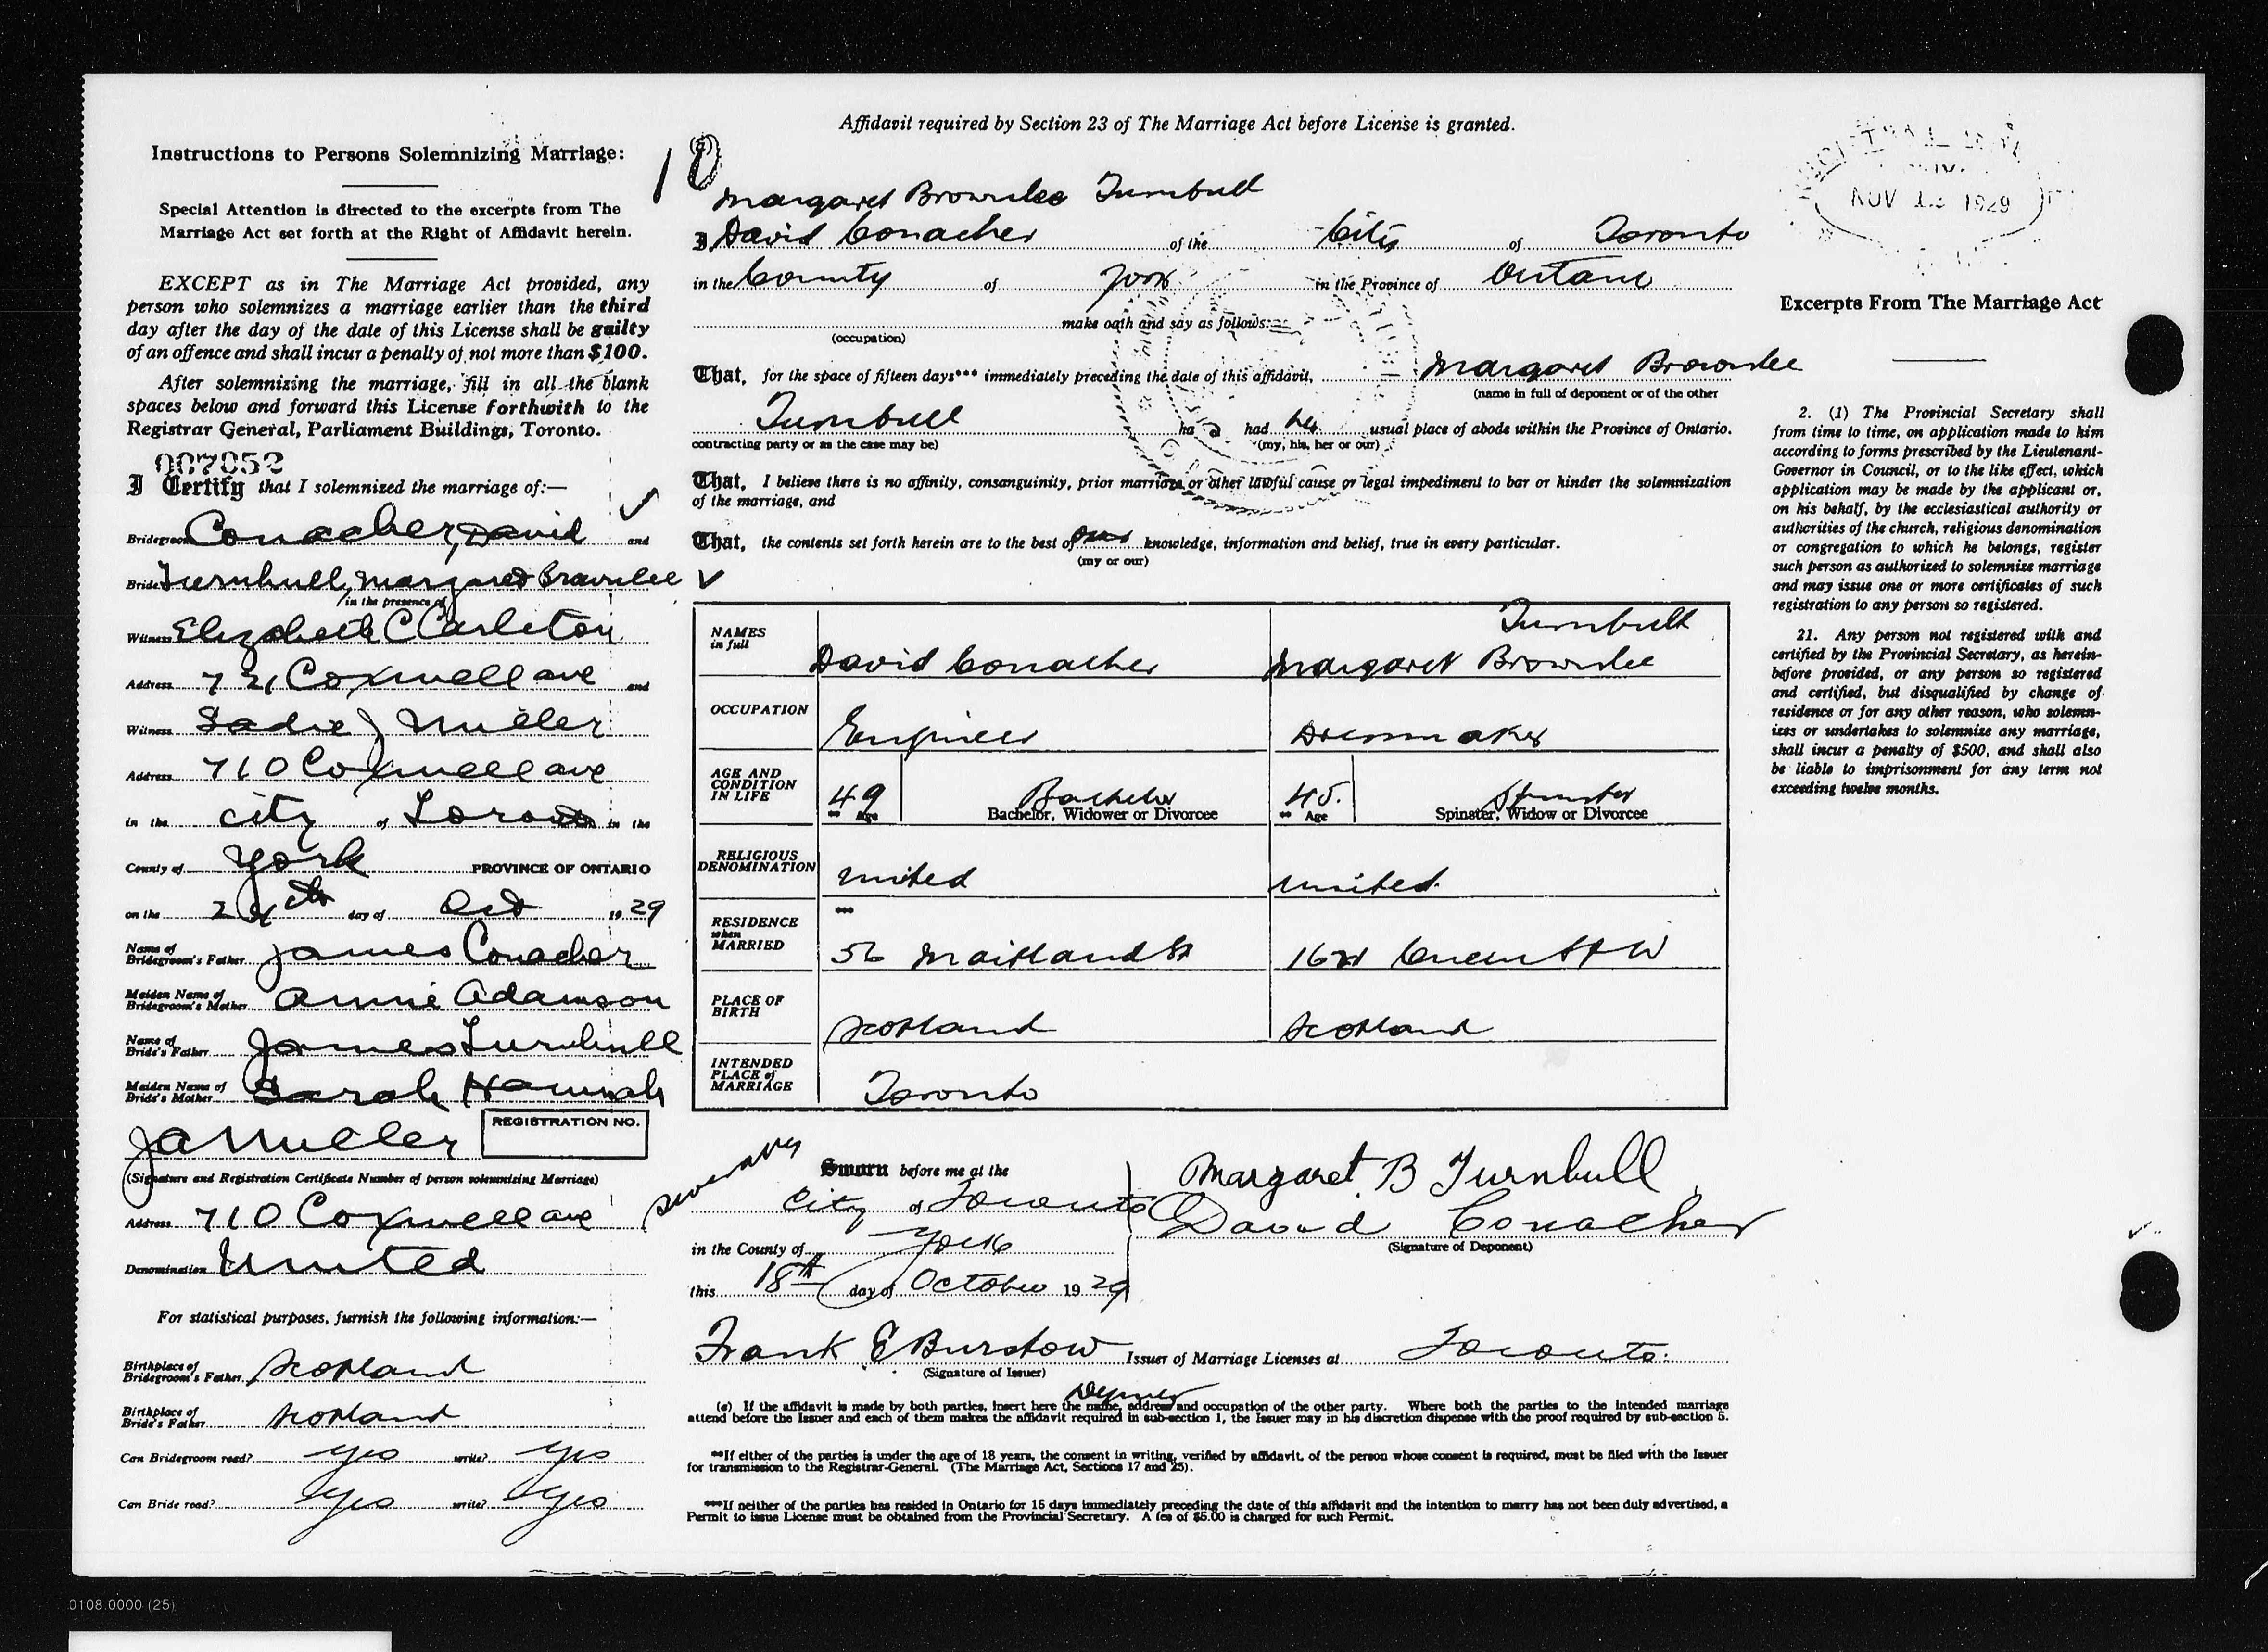 Affidavit required by Section 23 of The Marriage Act before License is granted.
Instructions to Persons Solemnizing Marriage:
Special Attention is directed to the excerpts from The
Marriage Act set forth at the Right of Affidavit herein.
EXCEPT as in The Marriage Act provided, any
person who solemnizes a marriage earlier than the third
day after the day of the date of this License shall be guilty
of an offence and shall incur a penalty of not more than $100.
After solemnizing the marriage, fill in all the blank
spaces below and forward this License forthwith to the
Registrar General, Parliament Buildings, Toronto.
007052
I Certify that I solemnized the marriage of:—
Bridegroom Conacher, David and
Bride Turnbull, Margaret Brownlee
in the presence of
Witness Elizabeth C Carleton
Address 721 Coxwell ave and
Witness Sadie J Miller
Address 710 Coxwell ave
in the city of Toronto in the
County of York PROVINCE OF ONTARIO
on the 24th day of Oct 1929
Name of Bridegroom's Father James Conacher
Maiden Name of Bridegroom's Mother Annie Adamson
Name of Bride's Father James Turnbull
Maiden Name of Bride's Mother Sarah Hannah
REGISTRATION NO.
J A Miller
(Signature and Registration Certificate Number of person solemnizing Marriage)
Address 710 Coxwell ave
Denomination United
For statistical purposes, furnish the following information:—
Birthplace of Bridegroom's Father Scotland
Birthplace of Bride's Father Scotland
Can Bridegroom read? yes write? yes
Can Bride read? yes write? yes
Margaret Brownlee Turnbull
I David Conacher of the City of Toronto
in the County of York in the Province of Ontario
make oath and say as follows:
(occupation)
That, for the space of fifteen days*** immediately preceding the date of this affidavit, Margaret Brownlee
(name in full of deponent or of the other
Turnbull ha s had her usual place of abode within the Province of Ontario.
contracting party or as the case may be) (my, his, her or our)
That, I believe there is no affinity, consanguinity, prior marriage or other lawful cause or legal impediment to bar or hinder the solemnization
of the marriage, and
That, the contents set forth herein are to the best of our knowledge, information and belief, true in every particular.
(my or our)
NAMES in full David Conacher Margaret Brownlee Turnbull
OCCUPATION Engineer Dressmaker
AGE AND CONDITION IN LIFE 49 Bachelor 45. Spinster
** Age Bachelor, Widower or Divorcee ** Age Spinster, Widow or Divorcee
RELIGIOUS DENOMINATION United United
***
RESIDENCE when MARRIED 56 Maitland St 1621 Queen St W
PLACE OF BIRTH Scotland Scotland
INTENDED PLACE of MARRIAGE Toronto
Sworn before me at the
City of Toronto
in the County of York
this 18th day of October 1929
Margaret B Turnbull
David Conacher
(Signature of Deponent)
Frank E Burstow Issuer of Marriage Licenses at Toronto.
(Signature of Issuer)
Deputy
(*) If the affidavit is made by both parties, insert here the name, address and occupation of the other party. Where both the parties to the intended marriage
attend before the Issuer and each of them makes the affidavit required in sub-section 1, the Issuer may in his discretion dispense with the proof required by sub-section 5.
**If either of the parties is under the age of 18 years, the consent in writing, verified by affidavit, of the person whose consent is required, must be filed with the Issuer
for transmission to the Registrar-General. (The Marriage Act, Sections 17 and 25).
***If neither of the parties has resided in Ontario for 15 days immediately preceding the date of this affidavit and the intention to marry has not been duly advertised, a
Permit to issue License must be obtained from the Provincial Secretary. A fee of $5.00 is charged for such Permit.
NOV 1929
Excerpts From The Marriage Act
2. (1) The Provincial Secretary shall
from time to time, on application made to him
according to forms prescribed by the Lieutenant-
Governor in Council, or to the like effect, which
application may be made by the applicant or,
on his behalf, by the ecclesiastical authority or
authorities of the church, religious denomination
or congregation to which he belongs, register
such person as authorized to solemnize marriage
and may issue one or more certificates of such
registration to any person so registered.
21. Any person not registered with and
certified by the Provincial Secretary, as herein-
before provided, or any person so registered
and certified, but disqualified by change of
residence or for any other reason, who solemn-
izes or undertakes to solemnize any marriage,
shall incur a penalty of $500, and shall also
be liable to imprisonment for any term not
exceeding twelve months.
0108.0000 (25)